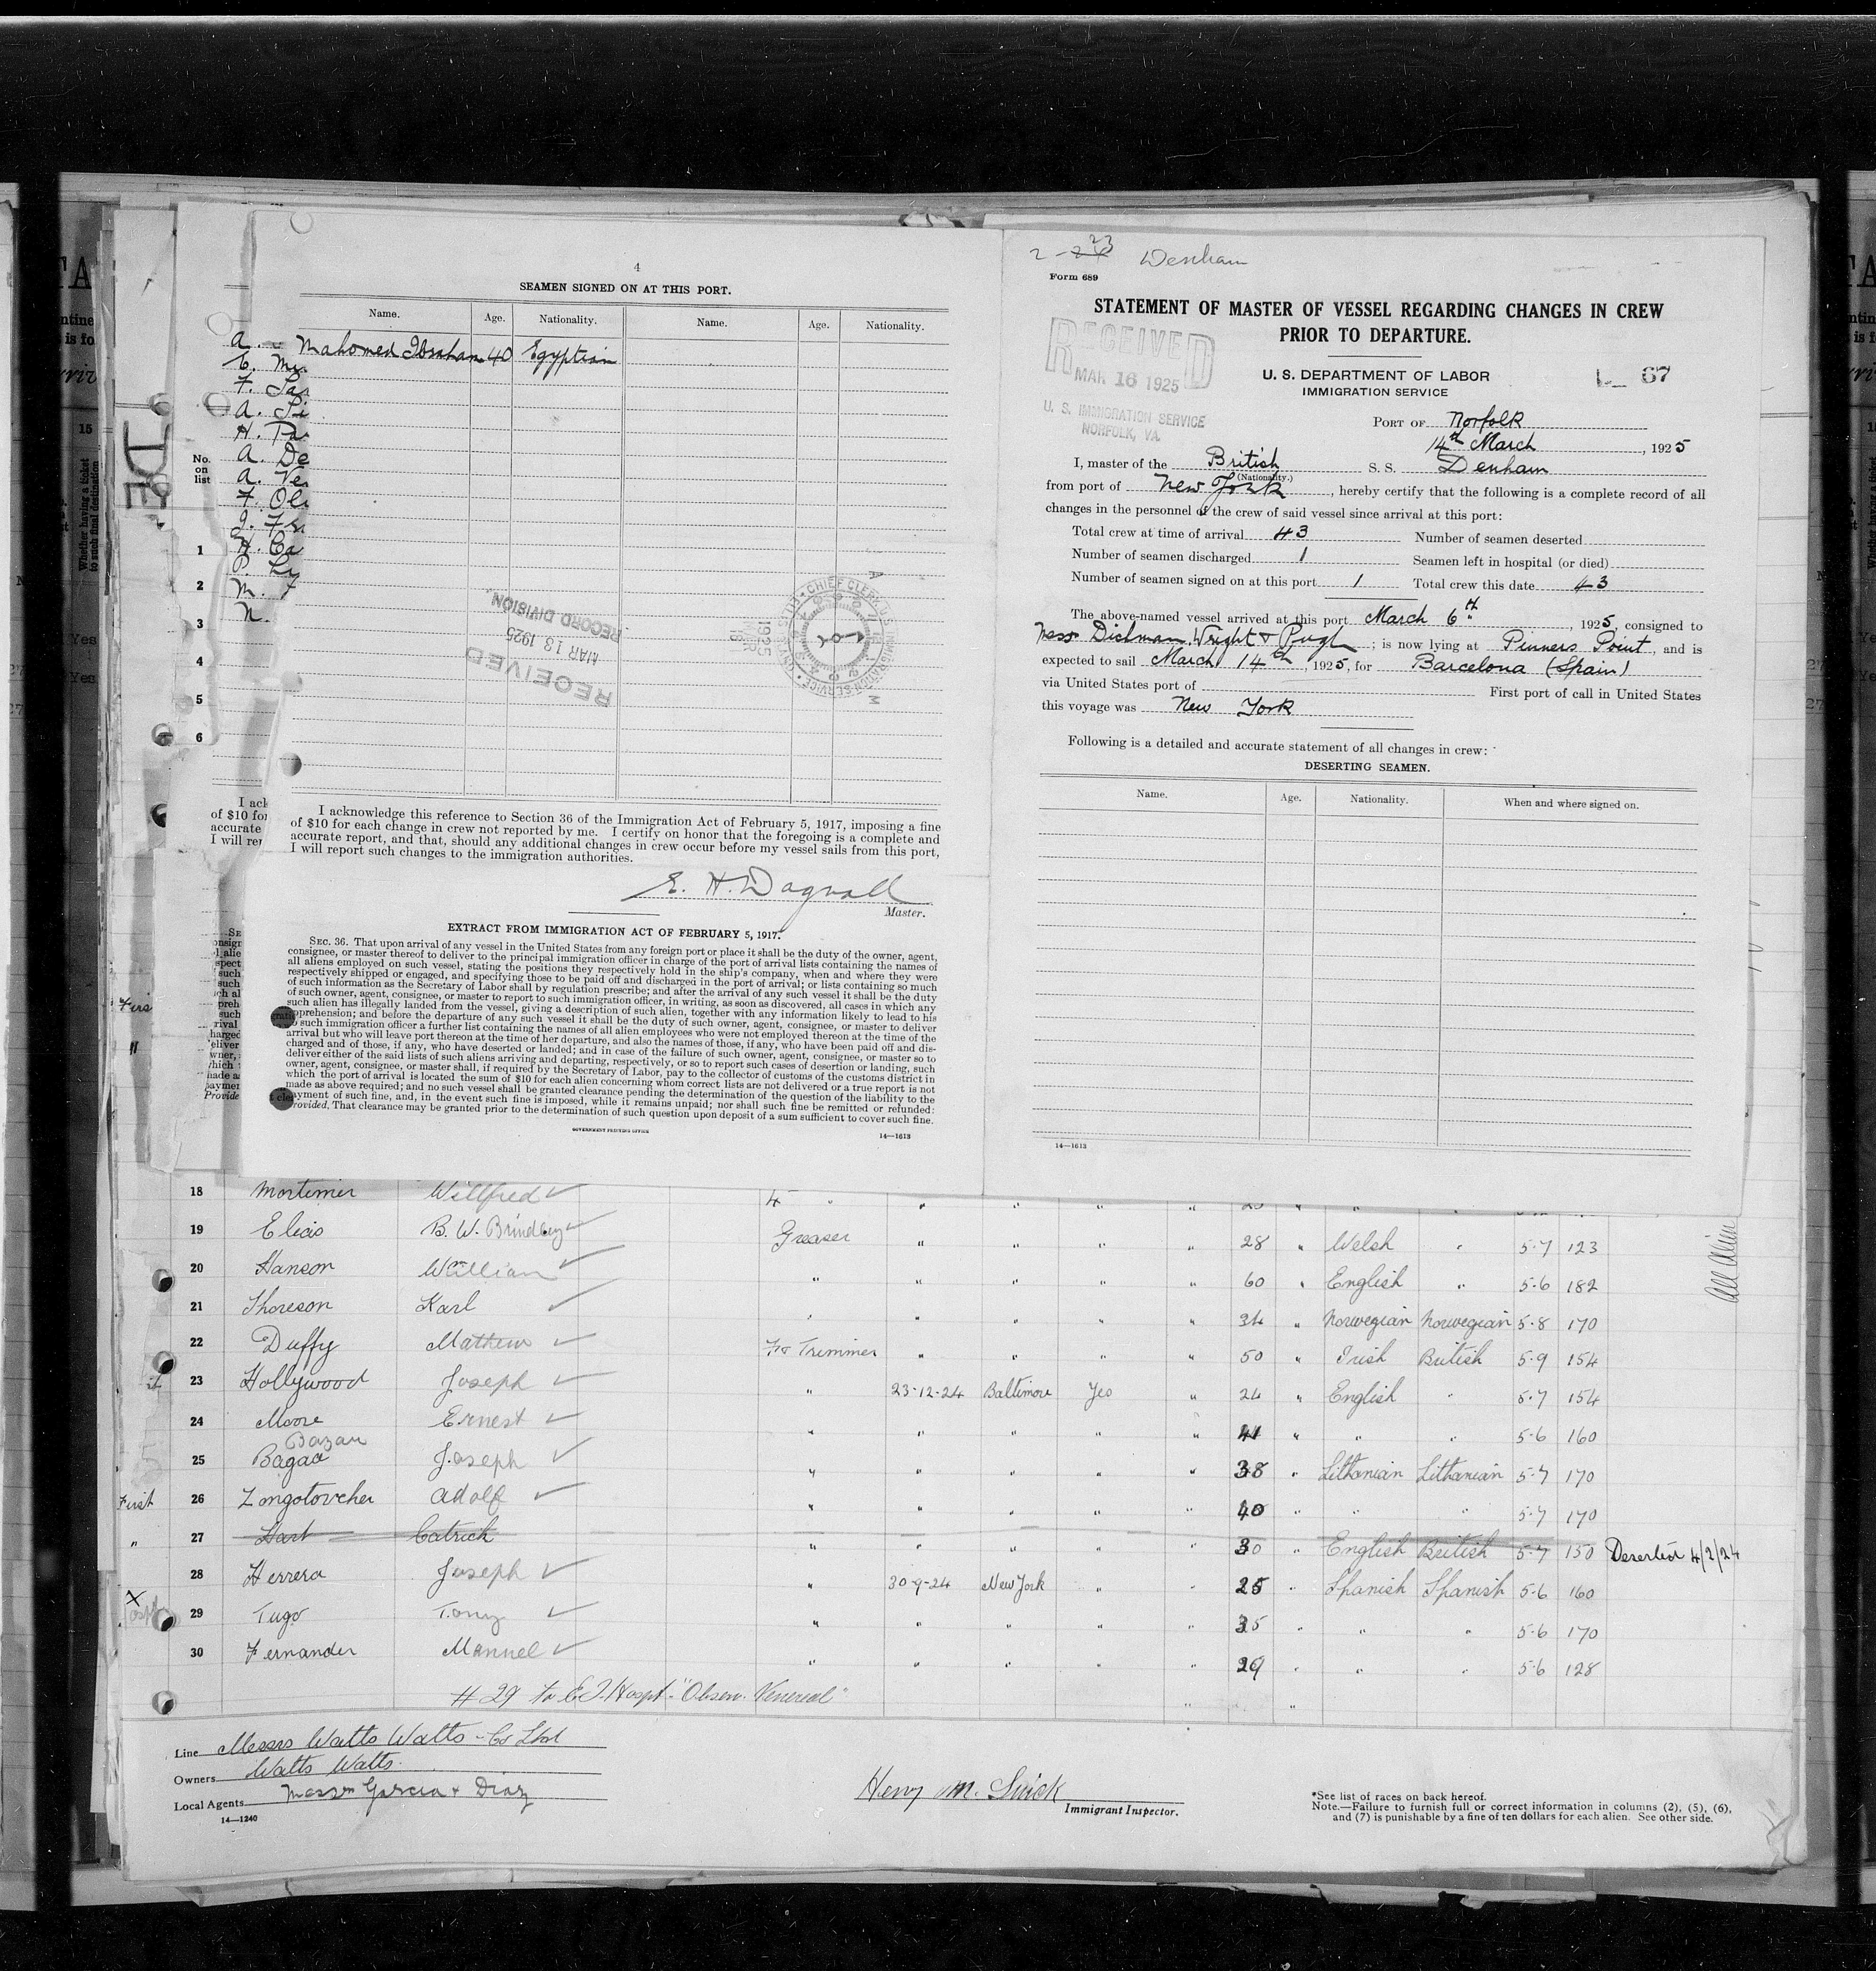 4
SEAMEN SIGNED ON AT THIS PORT.
Name. Age. Nationality. Name. Age. Nationality.
Mahomed Ibraham 40 Egyptian
No. on list
1
2
3
4
5
6
RECEIVED
MAR 18 1925
RECORD DIVISION.
I acknowledge this reference to Section 36 of the Immigration Act of February 5, 1917, imposing a fine
of $10 for each change in crew not reported by me. I certify on honor that the foregoing is a complete and
accurate report, and that, should any additional changes in crew occur before my vessel sails from this port,
I will report such changes to the immigration authorities.
E. H. Dagnall
Master.
EXTRACT FROM IMMIGRATION ACT OF FEBRUARY 5, 1917.
SEC. 36. That upon arrival of any vessel in the United States from any foreign port or place it shall be the duty of the owner, agent,
consignee, or master thereof to deliver to the principal immigration officer in charge of the port of arrival lists containing the names of
all aliens employed on such vessel, stating the positions they respectively hold in the ship's company, when and where they were
respectively shipped or engaged, and specifying those to be paid off and discharged in the port of arrival; or lists containing so much
of such information as the Secretary of Labor shall by regulation prescribe; and after the arrival of any such vessel it shall be the duty
of such owner, agent, consignee, or master to report to such immigration officer, in writing, as soon as discovered, all cases in which any
such alien has illegally landed from the vessel, giving a description of such alien, together with any information likely to lead to his
apprehension; and before the departure of any such vessel it shall be the duty of such owner, agent, consignee, or master to deliver
to such immigration officer a further list containing the names of all alien employees who were not employed thereon at the time of the
arrival but who will leave port thereon at the time of her departure, and also the names of those, if any, who have been paid off and dis-
charged and of those, if any, who have deserted or landed; and in case of the failure of such owner, agent, consignee, or master so to
deliver either of the said lists of such aliens arriving and departing, respectively, or so to report such cases of desertion or landing, such
owner, agent, consignee, or master, shall, if required by the Secretary of Labor, pay to the collector of customs of the customs district in
which the port of arrival is located the sum of $10 for each alien concerning whom correct lists are not delivered or a true report is not
made as above required; and no such vessel shall be granted clearance pending the determination of the question of the liability to the
payment of such fine, and, in the event such fine is imposed, while it remains unpaid; nor shall such fine be remitted or refunded:
Provided, That clearance may be granted prior to the determination of such question upon deposit of a sum sufficient to cover such fine.
GOVERNMENT PRINTING OFFICE 14—1613
2-23 Denham
Form 689
STATEMENT OF MASTER OF VESSEL REGARDING CHANGES IN CREW
PRIOR TO DEPARTURE.
RECEIVED
MAR 16 1925
U. S. IMMIGRATION SERVICE
NORFOLK, VA.
U. S. DEPARTMENT OF LABOR
IMMIGRATION SERVICE
L 67
PORT OF Norfolk
14th March, 1925
I, master of the British S. S. Denham
(Nationality.)
from port of New York, hereby certify that the following is a complete record of all
changes in the personnel of the crew of said vessel since arrival at this port:
Total crew at time of arrival 43 Number of seamen deserted
Number of seamen discharged 1 Seamen left in hospital (or died)
Number of seamen signed on at this port 1 Total crew this date 43
The above-named vessel arrived at this port March 6th, 1925, consigned to
Messrs Dichman Wright & Pugh; is now lying at Pinners Point, and is
expected to sail March 14th, 1925, for Barcelona (Spain)
via United States port of First port of call in United States
this voyage was New York
Following is a detailed and accurate statement of all changes in crew:
DESERTING SEAMEN.
Name. Age. Nationality. When and where signed on.
14—1613
18 Mortimer Willfred
19 Elias B. W. Brindley Greaser " " " " 28 " Welsh " 5-7 123
20 Hanson William " " " " " 60 " English " 5-6 182
21 Thoreson Karl " " " " " 34 " Norwegian Norwegian 5-8 170
22 Duffy Mathew Trimmer " " " " 50 " Irish British 5-9 154
23 Hollywood Joseph " 23-12-24 Baltimore Yes " 24 " English " 5-7 154
24 Moore Ernest " " " " " 41 " " " 5-6 160
Bazan
25 Bagaa Joseph " " " " " 38 " Lithanian Lithanian 5-7 170
First 26 Zongotovcher Adolf " " " " " 40 " " " 5-7 170
" 27 Hart Catrick " " " " " 30 " English British 5-7 150 Deserted 4/2/24
28 Herrera Joseph " 30-9-24 New York " " 25 " Spanish Spanish 5-6 160
29 Tugo Tony " " " " " 35 " " " 5-6 170
30 Fernander Mannel " " " " " 29 " " " 5-6 128
# 29 to E.I. Hospt. "Observ. Venereal"
Line Messrs Watts Watts - Co Ltd
Owners Watts Watts.
Local Agents Messrs Garcia & Diaz
14—1240
Immigrant Inspector.
*See list of races on back hereof.
Note.—Failure to furnish full or correct information in columns (2), (5), (6),
and (7) is punishable by a fine of ten dollars for each alien. See other side.